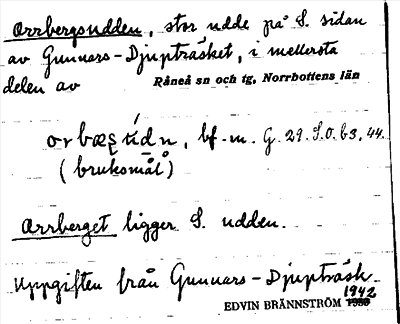 Orrbergsudden, stor udde på S. sidan
av Gunnars-Djupträsket, i mellersta
delen av Råneå sn och tg, Norrbottens län
bf. m. G. 29. S.O. 63, 44.
(bruksmål)
Orrberget ligger S. udden.
Uppgiften från Gunnars-Djupträsk.
1942
EDVIN BRÄNNSTRÖM